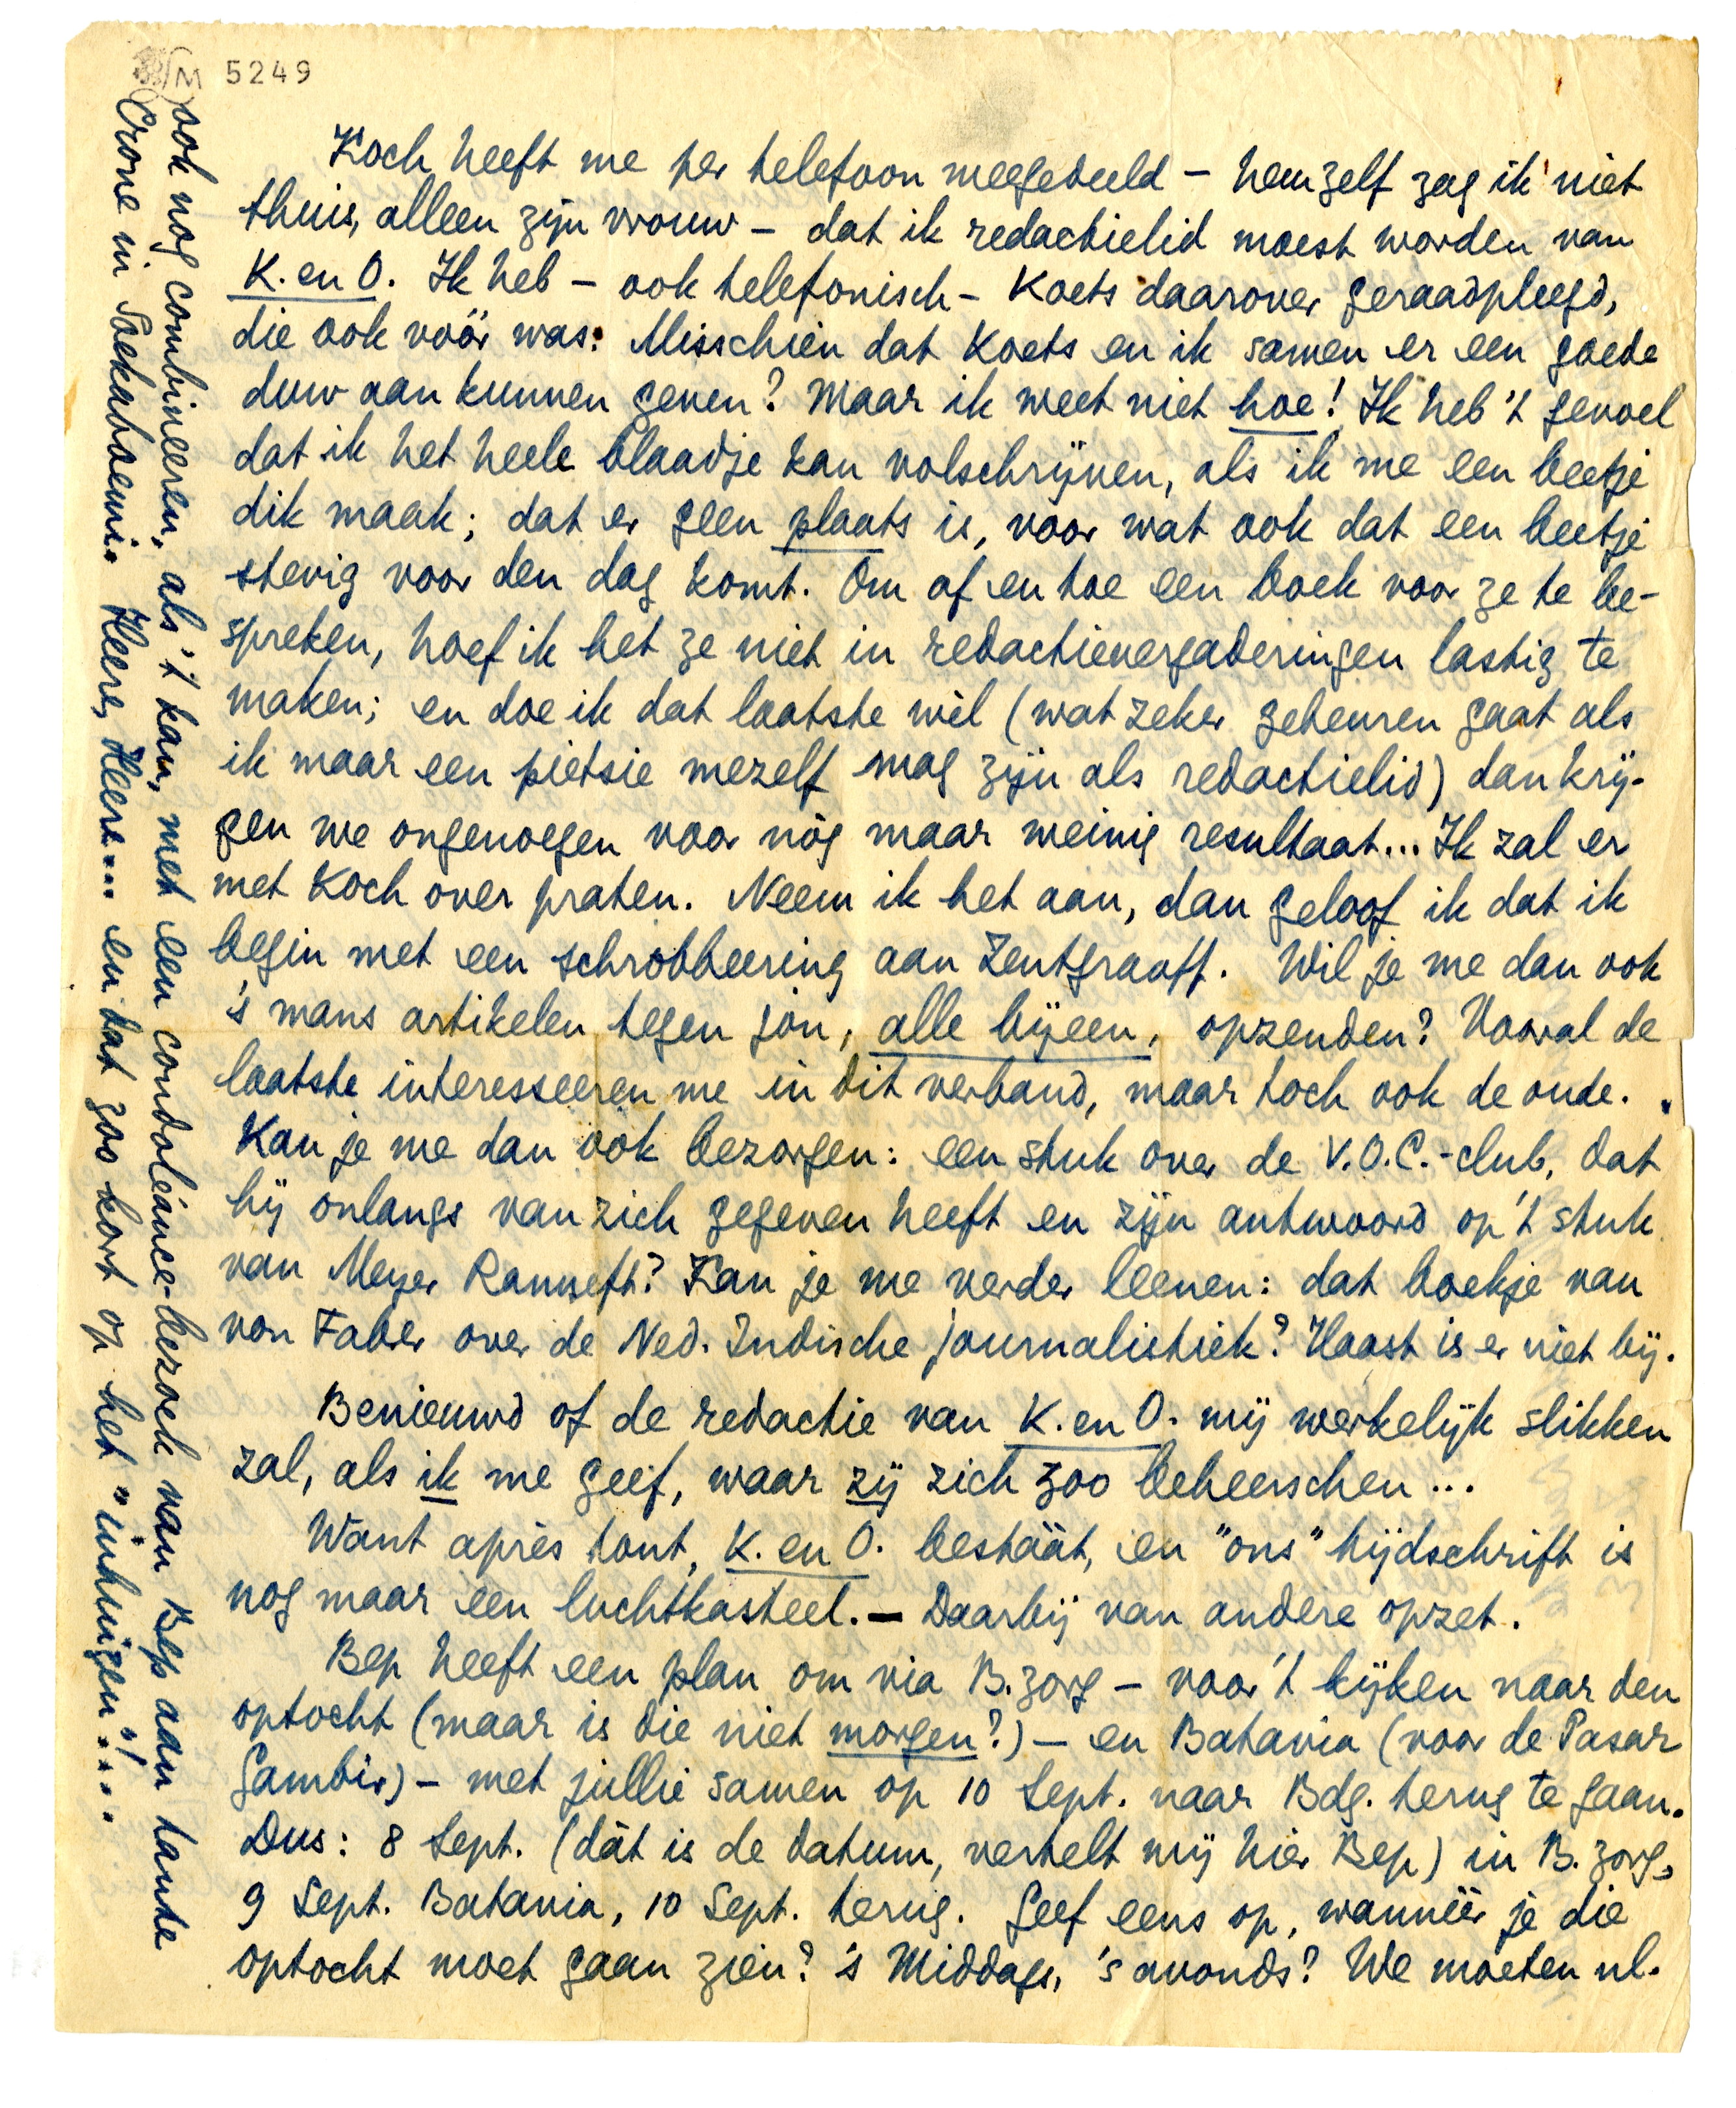 M 5249
Koch heeft me per telefoon meegedeeld – hemzelf zag ik niet
thuis, alleen zijn vrouw – dat ik redactielid moest worden van
K. en O. Ik heb – ook telefonisch – Koets daarover geraadpleegd,
die ook vóór was. Misschien dat Koets en ik samen er een goede
duw aan kunnen geven? Maar ik weet niet hoe! Ik heb 't gevoel
dat ik het heele blaadje kan volschrijven, als ik me een beetje
dik maak; dat er geen plaats is, voor wat ook dat een beetje
stevig voor den dag komt. Om af en toe een boek voor ze te be-
spreken, hoef ik het ze niet in redactievergaderingen lastig te
maken; en doe ik dat laatste wèl (wat zeker gebeuren gaat als
ik maar een pietsie mezelf mag zijn als redactielid) dan krij-
gen we ongenoegen voor nòg maar weinig resultaat... Ik zal er
met Koch over praten. Neem ik het aan, dan geloof ik dat ik
begin met een schrobbeering aan Zentgraaff. Wil je me dan ook
's mans artikelen tegen jòu, alle bijeen, opzenden? Vooral de
laatste interesseeren me in dit verband, maar toch ook de oude.
Kan je me dan ook bezorgen: een stuk over de V.O.C.-club, dat
hij onlangs van zich gegeven heeft en zijn antwoord op 't stuk
van Meyer Ranneft? Kan je me verder leenen: dat boekje van
von Faber over de Ned. Indische journalistiek? Haast is er niet bij.
Benieuwd of de redactie van K. en O. mij werkelijk slikken
zal, als ik me geef, waar zij zich zoo beheerschen...
Want après tout, K. en O. bestáát, en "ons" tijdschrift is
nog maar een luchtkasteel. – Daarbij van andere opzet.
Bep heeft een plan om via B.zorg – voor 't kijken naar den
optocht (maar is die niet morgen?) – en Batavia (voor de Pasar
Gambir) – met jullie samen op 10 Sept. naar Bdg. terug te gaan.
Dus: 8 Sept. (dát is de datum, vertelt mij hier Bep) in B.zorg,
9 Sept. Batavia, 10 Sept. terug. Geef eens op, wannéér je die
optocht moet gaan zien? 's Middags, 's avonds? We moeten nl.
ook nog combineeren, als 't kan, met een condoléance-bezoek van Bep aan tante
Crone in Soekaboemi. Heere, Heere... en dat zoo kort op het "inhuizen"!...